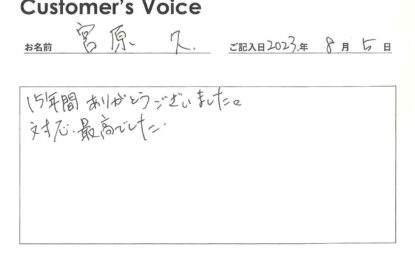 Customer's Voice
お名前 宮原 久 ご記入日2023.年 8月 5日
15年間 ありがとうございました。
対応.最高でした.